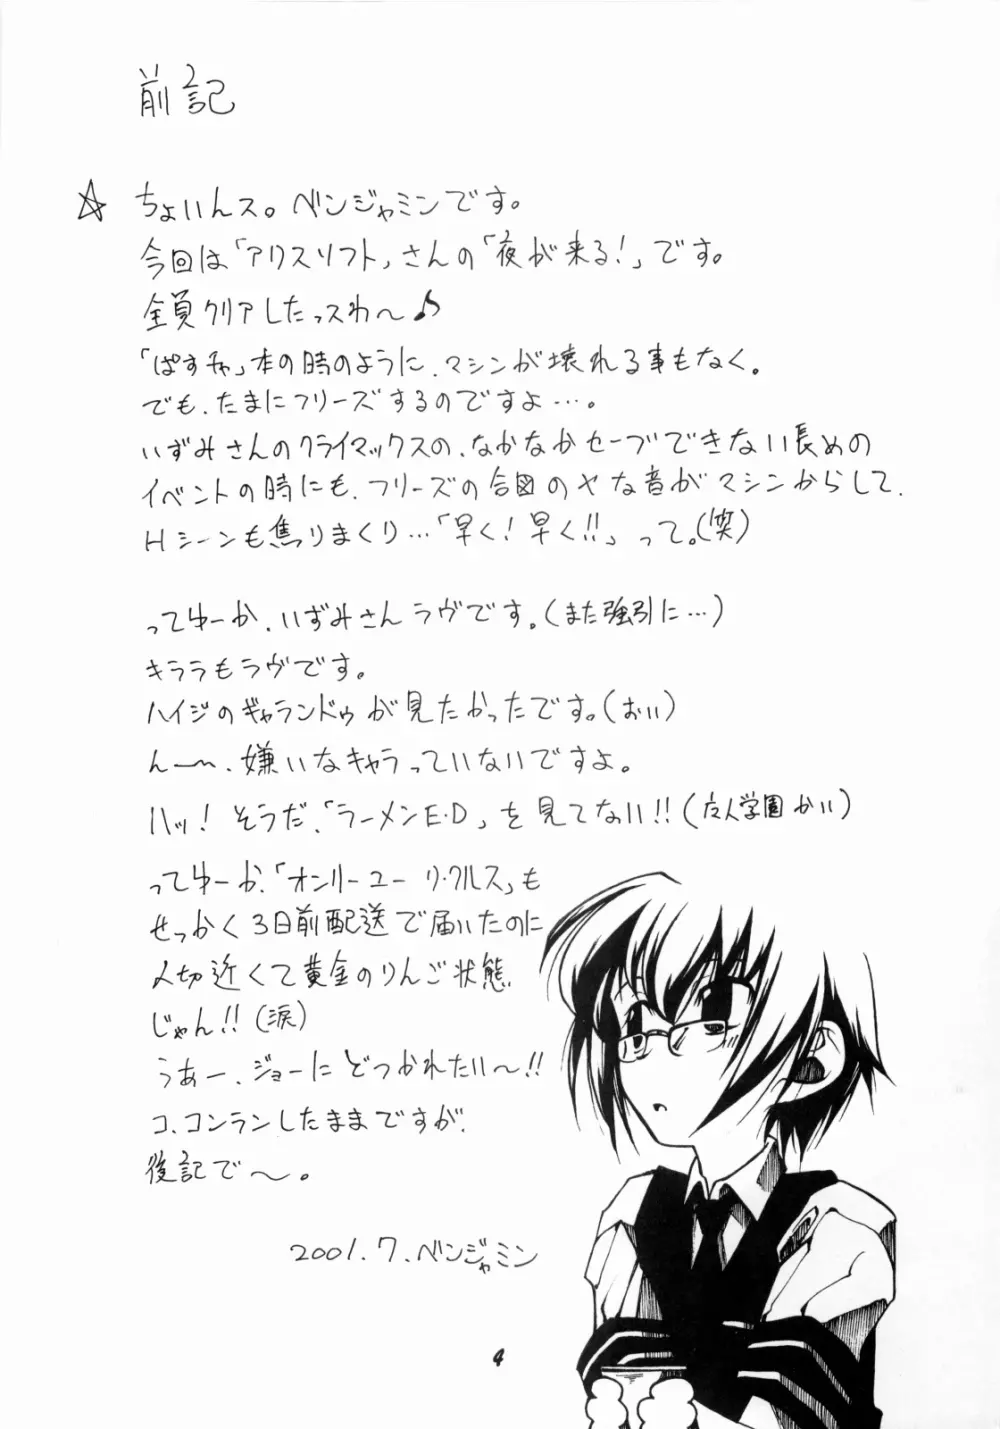 前記
☆ ちょいんス。ベンジャミンです。
今回は「アリスソフト」さんの「夜が来る!」です。
全員クリアしたっスわ〜♪
「ぱすチャ」本の時のように、マシンが壊れる事もなく。
でも、たまにフリーズするのですよ…。
いずみさんのクライマックスの、なかなかセーブできない長めの
イベントの時にも、フリーズの合図のヤな音がマシンからして、
Hシーンも焦りまくり…「早く!早く!!」って。(笑)
ってゆーか、いずみさんラヴです。(また強引に…)
キララもラヴです。
ハイジのギャランドゥが見たかったです。(おい)
ん〜〜、嫌いなキャラっていないですよ。
ハッ! そうだ、「ラーメンE・D」を見てない!!(友人学園かい)
ってゆーか、「オンリーユー リ・クルス」も
せっかく3日前配送で届いたのに
〆切近くて黄金のりんご状態
じゃん!!(涙)
うあー、ジョーにどつかれたい〜!!
コ、コンランしたままですが、
後記で〜。
2001.7.ベンジャミン
4